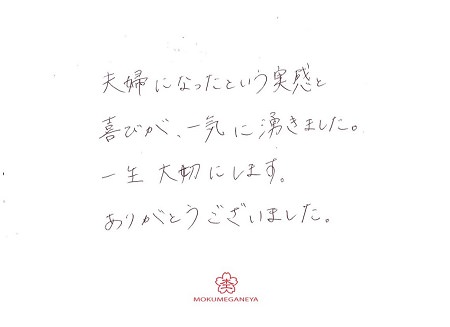 夫婦になったという実感と
喜びが、一気に湧きました。
一生大切にします。
ありがとうございました。
MOKUMEGANEYA